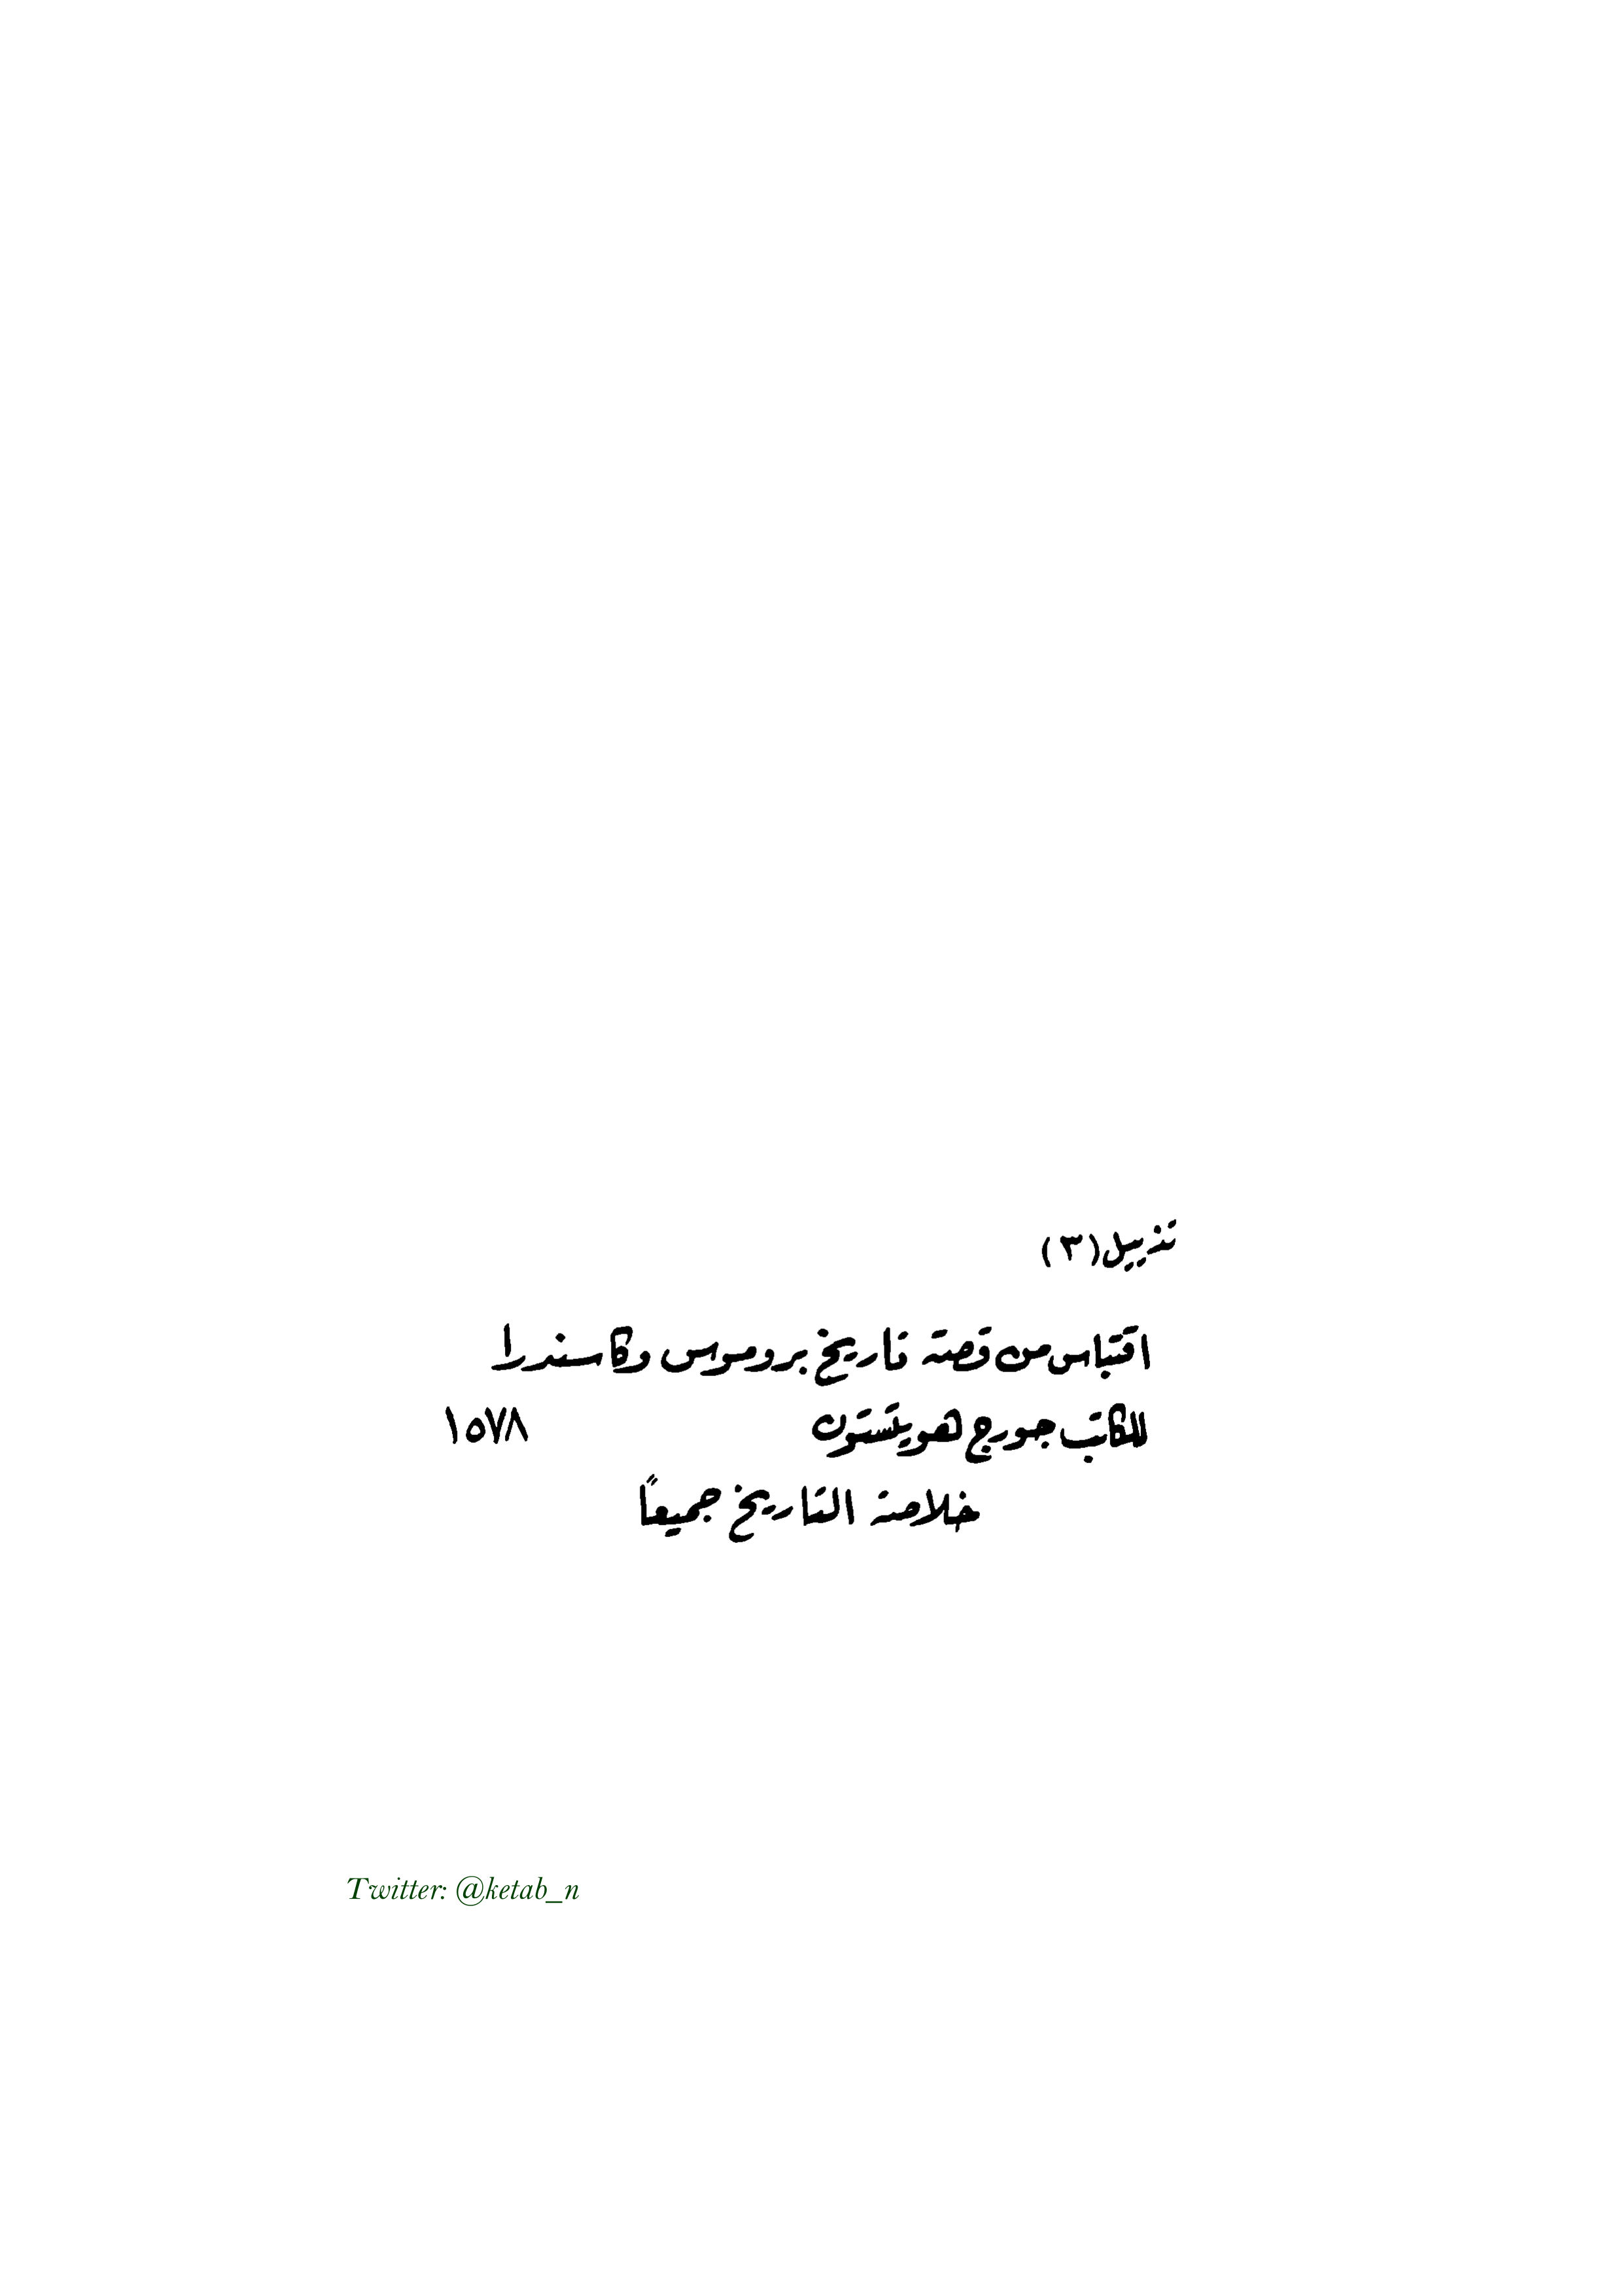 تذييل (٣)
اقتباس من قصة تاريخ بروموس وكاسندرا
للكاتب جورج هويتستون ١٥٧٨
خلاصة التاريخ جميعاً
Twitter: @ketab_n